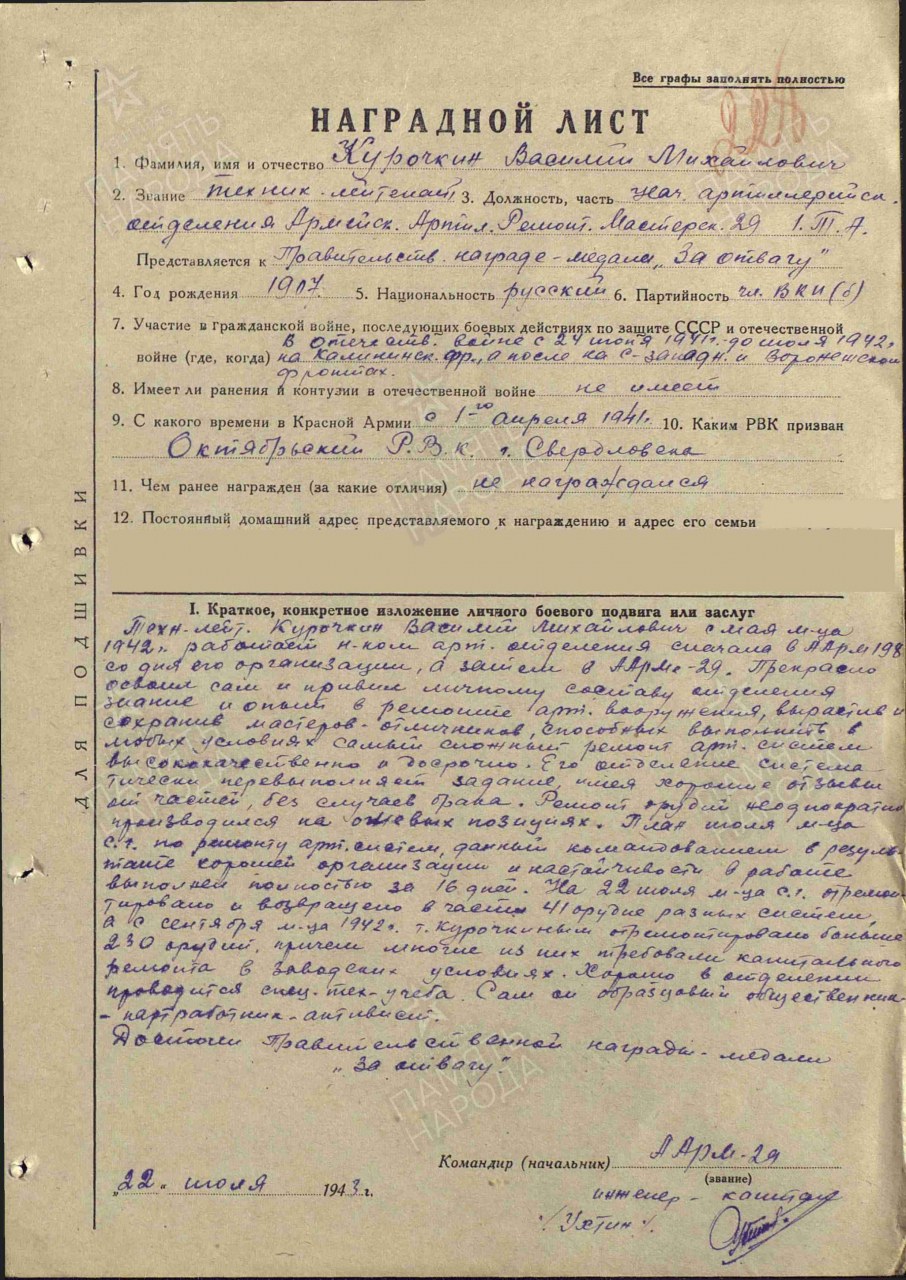 Все графы заполнять полностью
НАГРАДНОЙ ЛИСТ
1. Фамилия, имя и отчество Курочкин Василий Михайлович
2. Звание техник-лейтенант 3. Должность, часть Нач. артиллерийск.
отделения Армейск. Артил. Ремонт. Мастерск. 29 1. Т. А.
Представляется к Правительств. награде - медали "За отвагу"
4. Год рождения 1907. 5. Национальность русский 6. Партийность чл. ВКП(б)
7. Участие в гражданской войне, последующих боевых действиях по защите СССР и отечественной
В отечеств. войне с 24 июня 1941г. до июля 1942г.
войне (где, когда) на Калининск. фр., а после на С-западн. и Воронежском
фронтах.
8. Имеет ли ранения и контузии в отечественной войне не имеет
9. С какого времени в Красной Армии с 1-го апреля 1941г. 10. Каким РВК призван
Октябрьский Р.В.К. г. Свердловска
11. Чем ранее награжден (за какие отличия) не награждался
12. Постоянный домашний адрес представляемого к награждению и адрес его семьи
ДЛЯ ПОДШИВКИ
I. Краткое, конкретное изложение личного боевого подвига или заслуг
Техн-лейт. Курочкин Василий Михайлович с мая м-ца
1942г. работает н-ком арт. отделения сначала в ААРМ 198
со дня его организации, а затем в ААРМ-29. Прекрасно
освоил сам и привил личному составу отделения
знание и опыт в ремонте арт. вооружения, вырастив и
сохранив мастеров-отличников, способных выполнить в
любых условиях самый сложный ремонт арт. систем
высококачественно и досрочно. Его отделение система
тически перевыполняет задание, имея хорошие отзывы
от частей, без случаев брака. Ремонт орудий неоднократно
производился на огневых позициях. План июля м-ца
с.г. по ремонту арт. систем, данный командованием в резуль-
тате хорошей организации и настойчивости в работе
выполнен полностью за 16 дней. На 22 июля м-ца с.г. отремон-
тировано и возвращено в части 41 орудие разных систем,
а с сентября м-ца 1942г. т. Курочкиным отремонтировано больше
230 орудий, причем многие из них требовали капитального
ремонта в заводских условиях. Хорошо в отделении
проводится спец. тех-учеба. Сам он образцовый общественник-
- партработник-активист.
Достоин Правительственной награды - медали
"За отвагу".
Командир (начальник) ААРМ-29
(звание)
"22" июля 1943 г.
инженер-капитан
/Ухтин/.
ПАМЯТЬ НАРОДА